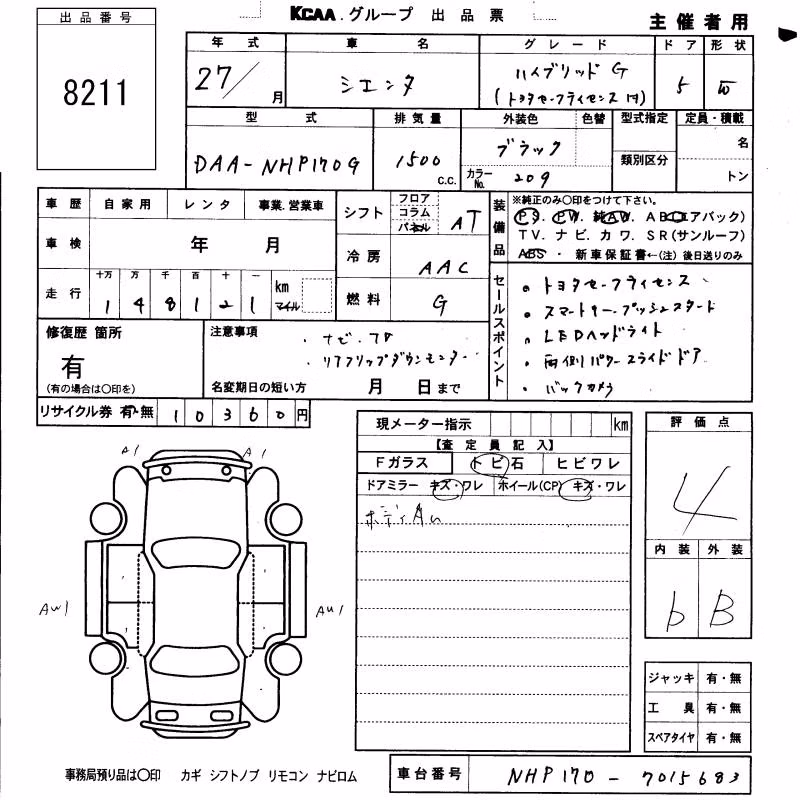 KCAA.グループ 出品票
主催者用
出品番号
8211
年式 車名 グレード ドア 形状
27/ 月 シエンタ ハイブリッド G 5 W
(トヨタセーフティセンス付)
型式 排気量 外装色 色替 型式指定 定員・積載
DAA-NHP170G 1500 c.c. ブラック 名
カラーNo. 209 類別区分 トン
車歴 自家用 レンタ 事業.営業車
車検 年 月
走行 十万 万 千 百 十 一
1 4 8 1 2 1 km マイル
シフト フロア コラム パネル AT
冷房 AAC
燃料 G
装備品
※純正のみ○印をつけて下さい。
PS. PW. 純AW. ABC(エアバック)
TV. ナビ. カワ. SR(サンルーフ)
ABS・ 新車保証書←(注) 後日送りのみ
セールスポイント
・トヨタセーフティセンス
・スマートキー・プッシュスタート
・LEDヘッドライト
・両側パワースライドドア
・バックカメラ
修復歴 箇所
有
(有の場合は○印を)
注意事項
・ナビ・フロ
・リアフリップダウンモニター
名変期日の短い方 月 日まで
リサイクル券 有・無 10360円
現メーター指示 km
【査定員記入】
Fガラス トビ石 ヒビワレ
ドアミラー キズ・ワレ ホイール(CP) キズ・ワレ
評価点
4
内装 外装
b B
A1 A1
AW1 AU1
ジャッキ 有・無
工具 有・無
スペアタイヤ 有・無
事務局預り品は○印 カギ シフトノブ リモコン ナビロム
車台番号 NHP170-7015683